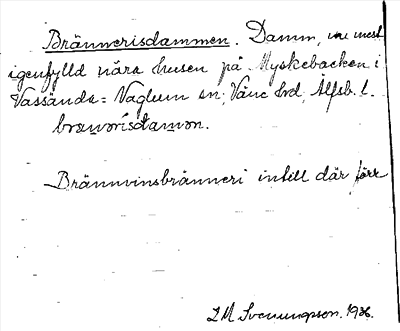 Brännerisdammen. Damm, nu mest
igenfylld nära husen på Myskebacken i
Vassända-Naglum sn, Väne hd, Älfsb. l.
Brännvinsbränneri intill där förr
I M Svenungsson. 1936.